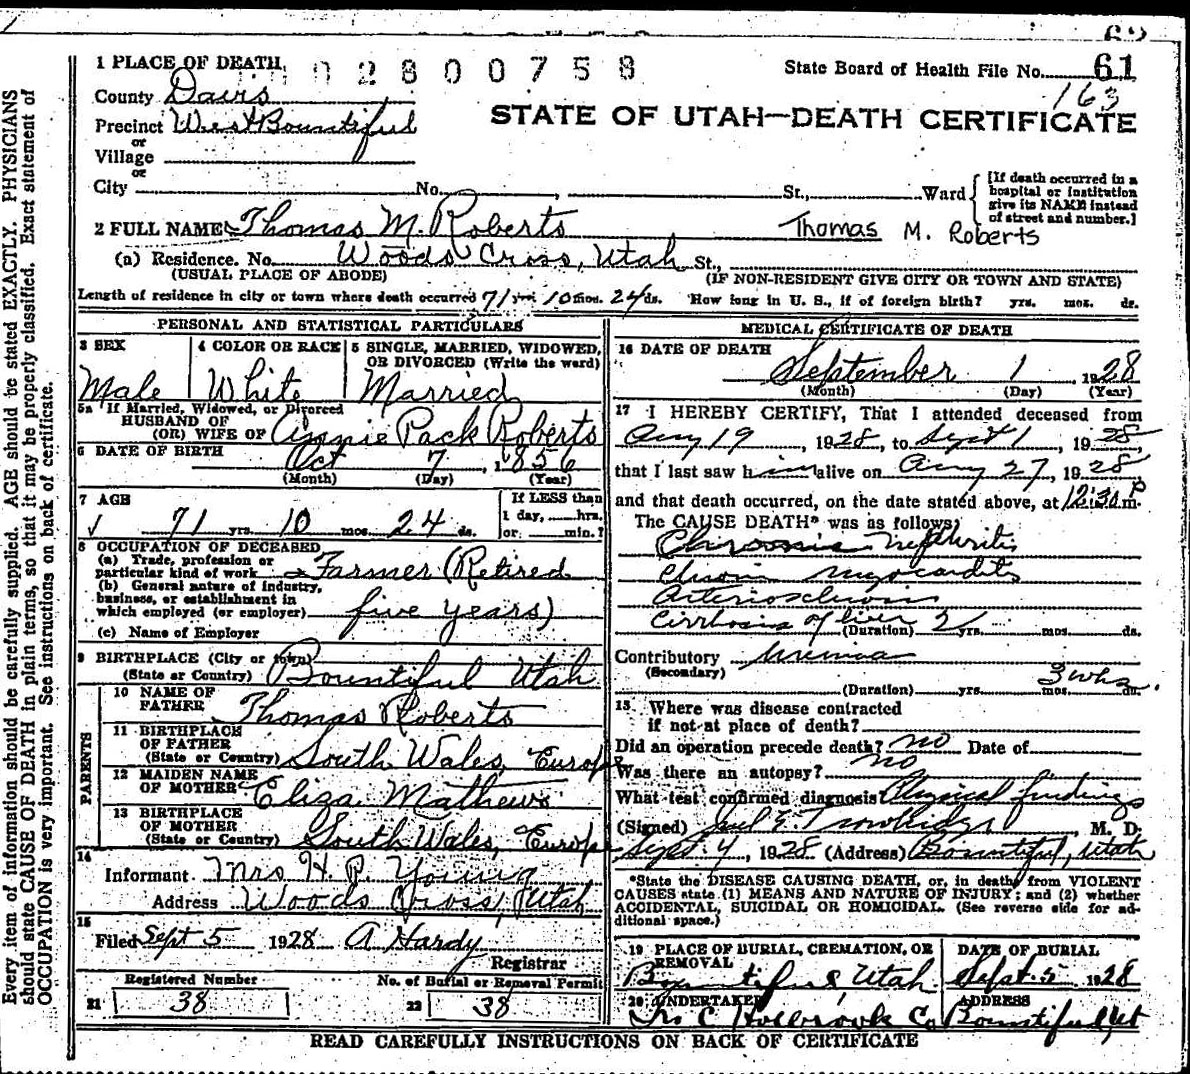 1 PLACE OF DEATH
0 2 8 0 0 7 5 8
State Board of Health File No. 61
163
County Davis
STATE OF UTAH—DEATH CERTIFICATE
Precinct West Bountiful
or
Village
or
City No. , St., Ward
[If death occurred in a
hospital or institution
give its NAME instead
of street and number.]
2 FULL NAME Thomas M. Roberts
Thomas M. Roberts
(a) Residence. No. Woods Cross, Utah St.,
(USUAL PLACE OF ABODE) (IF NON-RESIDENT GIVE CITY OR TOWN AND STATE)
Length of residence in city or town where death occurred 71 yrs. 10 mos. 24 ds. How long in U. S., if of foreign birth? yrs. mos. ds.
PERSONAL AND STATISTICAL PARTICULARS
3 SEX
Male
4 COLOR OR RACE
White
5 SINGLE, MARRIED, WIDOWED,
OR DIVORCED (Write the word)
Married
5a If Married, Widowed, or Divorced
HUSBAND OF
(OR) WIFE OF Annie Pack Roberts
6 DATE OF BIRTH Oct 7, 1856
(Month) (Day) (Year)
7 AGE
71 yrs. 10 mos. 24 ds.
If LESS than
1 day, hrs.
or min.?
8 OCCUPATION OF DECEASED
(a) Trade, profession or
particular kind of work Farmer (Retired
(b) General nature of industry,
business, or establishment in
which employed (or employer) five years)
(c) Name of Employer
9 BIRTHPLACE (City or town)
(State or Country) Bountiful Utah
PARENTS
10 NAME OF
FATHER Thomas Roberts
11 BIRTHPLACE
OF FATHER
(State or Country) South Wales, Europe
12 MAIDEN NAME
OF MOTHER Eliza Mathews
13 BIRTHPLACE
OF MOTHER
(State or Country) South Wales, Europe
14
Informant Mrs H. P. Young
Address Woods Cross, Utah
15
Filed Sept 5 1928 A Hardy
Registrar
Registered Number
21 38
No. of Burial or Removal Permit
22 38
MEDICAL CERTIFICATE OF DEATH
16 DATE OF DEATH
September 1, 1928
(Month) (Day) (Year)
17 I HEREBY CERTIFY, That I attended deceased from
Aug 19, 1928, to Sept 1, 1928
that I last saw him alive on Aug 27, 1928
and that death occurred, on the date stated above, at 12:30 P m.
The CAUSE DEATH* was as follows:
Chronic Nephritis
Chronic myocarditis
Arteriosclerosis
Cirrhosis of liver
(Duration) 2 yrs. mos. ds.
Contributory Uremia
(Secondary)
(Duration) yrs. mos. ds. 3 wks.
18 Where was disease contracted
if not at place of death?
Did an operation precede death? no Date of
Was there an autopsy? no
What test confirmed diagnosis? Physical findings
(Signed) Trowbridge, M. D.
Sept. 4, 1928 (Address) Bountiful, Utah
*State the DISEASE CAUSING DEATH, or, in death from VIOLENT
CAUSES state (1) MEANS AND NATURE OF INJURY; and (2) whether
ACCIDENTAL, SUICIDAL OR HOMICIDAL. (See reverse side for ad-
ditional space.)
19 PLACE OF BURIAL, CREMATION, OR
REMOVAL
Bountiful, Utah
DATE OF BURIAL
Sept. 5 1928
20 UNDERTAKER
C Holbrook Co
ADDRESS
Bountiful, Ut
READ CAREFULLY INSTRUCTIONS ON BACK OF CERTIFICATE
Every item of information should be carefully supplied. AGE should be stated EXACTLY. PHYSICIANS
should state CAUSE OF DEATH in plain terms, so that it may be properly classified. Exact statement of
OCCUPATION is very important. See instructions on back of certificate.